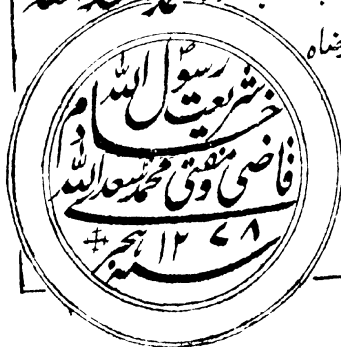 رضاہ
خادم شریعت رسول اللہ
قاضی و مفتی محمد سعد اللہ
سنہ ۱۲۷۸ ہجری